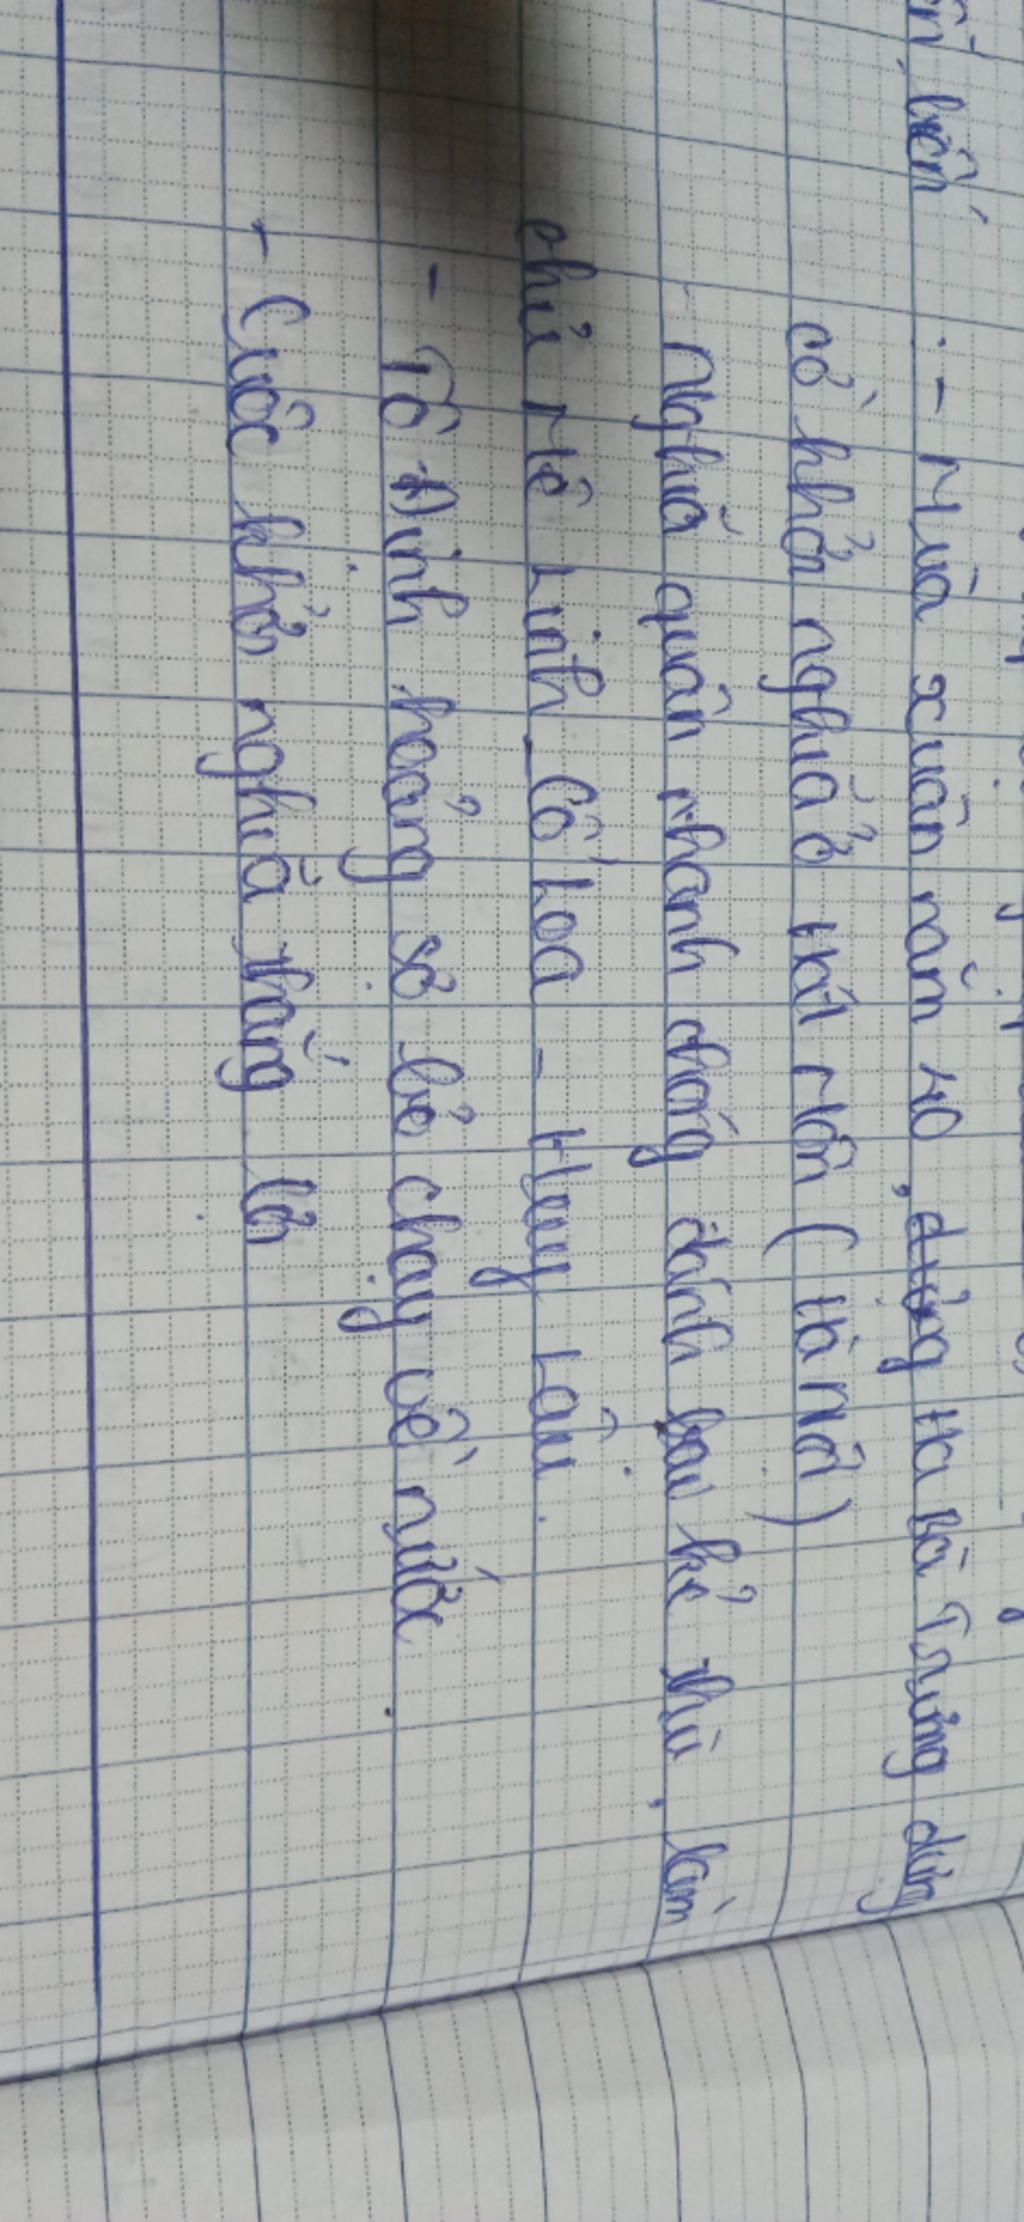 biến
- Mùa xuân năm 40, đường Hai Bà Trưng dựng
cờ khởi nghĩa ở Hát Môn ( Hà Nội )
- Nghĩa quân nhanh chóng đánh bại kẻ thù, làm
chủ Mê Linh - Cổ Loa - Huy Lâu.
- Tô Định hoảng sợ bỏ chạy về nước
- Cuộc khởi nghĩa thắng lợi